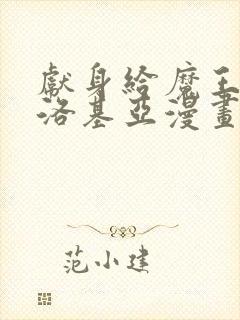 獻身給魔王
洛基亞漫畫
范小建